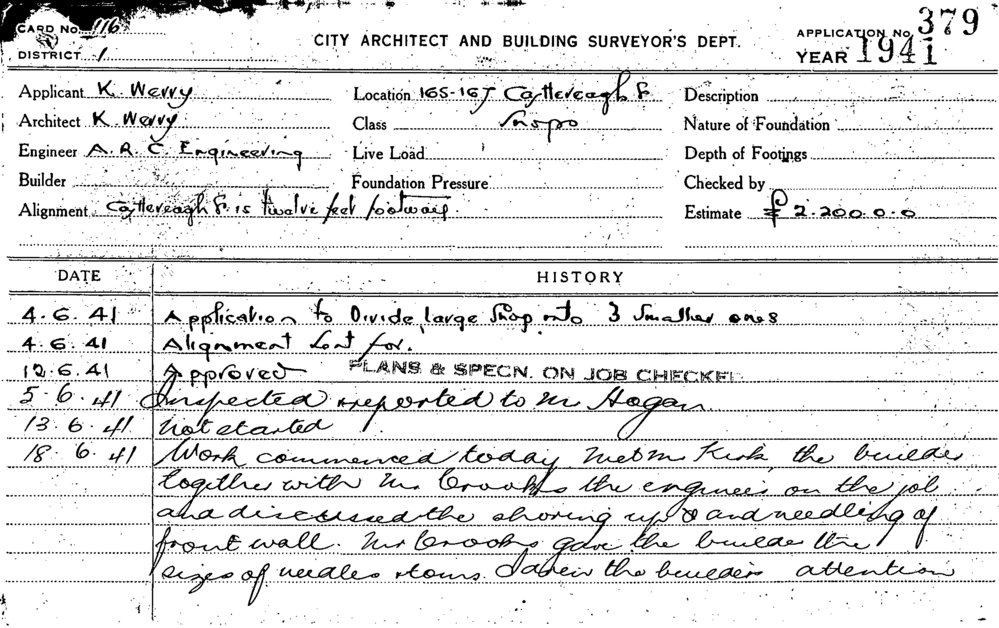 CARD No. 116
DISTRICT 1
CITY ARCHITECT AND BUILDING SURVEYOR'S DEPT.
APPLICATION No. 379
YEAR 1941
Applicant K. Werry Location 165-167 Castlereagh St Description
Architect K. Werry Class Shops Nature of Foundation
Engineer A.R.C. Engineering Live Load Depth of Footings
Builder Foundation Pressure Checked by
Alignment Castlereagh St. is twelve feet footways. Estimate £ 2.200.0.0
DATE HISTORY
4.6.41 Application to Divide large Shop into 3 Smaller ones
4.6.41 Alignment Sent for.
12.6.41 Approved PLANS & SPECN. ON JOB CHECKED
5.6.41 Inspected & reported to Mr Hogan
13.6.41 Not started
18.6.41 Work commenced today Met Mr Kirk the builder
together with Mr Crooks the engineer on the job
and discussed the shoring up & and needling of
front wall. Mr Crooks gave the builder the
sizes of needles & toms. Drew the builders attention